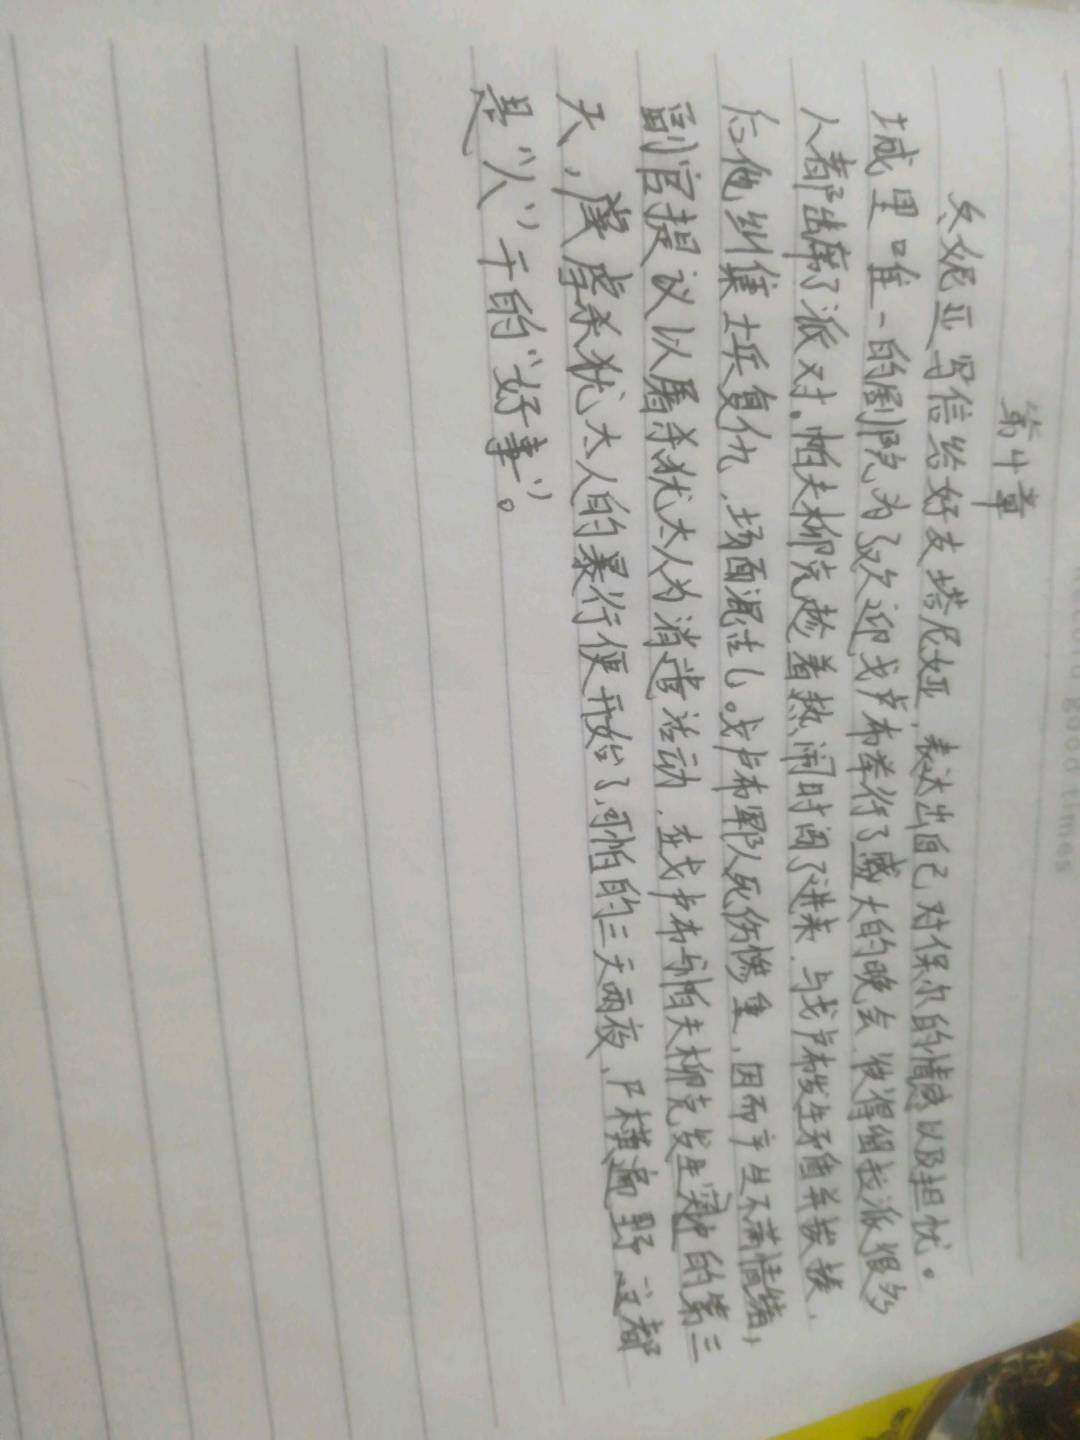 第十章
冬妮亚写信给好友塔尼娅，表达出自己对保尔的情感以及担忧。
城里唯一的剧院为了欢迎戈卢布举行了盛大的晚会，使得很多
人都出席了派对。帕夫柳克趁着热闹时闯了进来，与戈卢布发生矛盾并
后他纠集士兵复仇，场面混乱。戈卢布军人死伤惨重，因而产生不满情绪，
副官提议以屠杀犹太人为消遣活动，在戈卢布与帕夫柳克发生冲突的第三
天，虐杀犹太人的暴行便开始了，可怕的三天两夜，尸横遍野，这都
是“人”干的“好事”。
good times